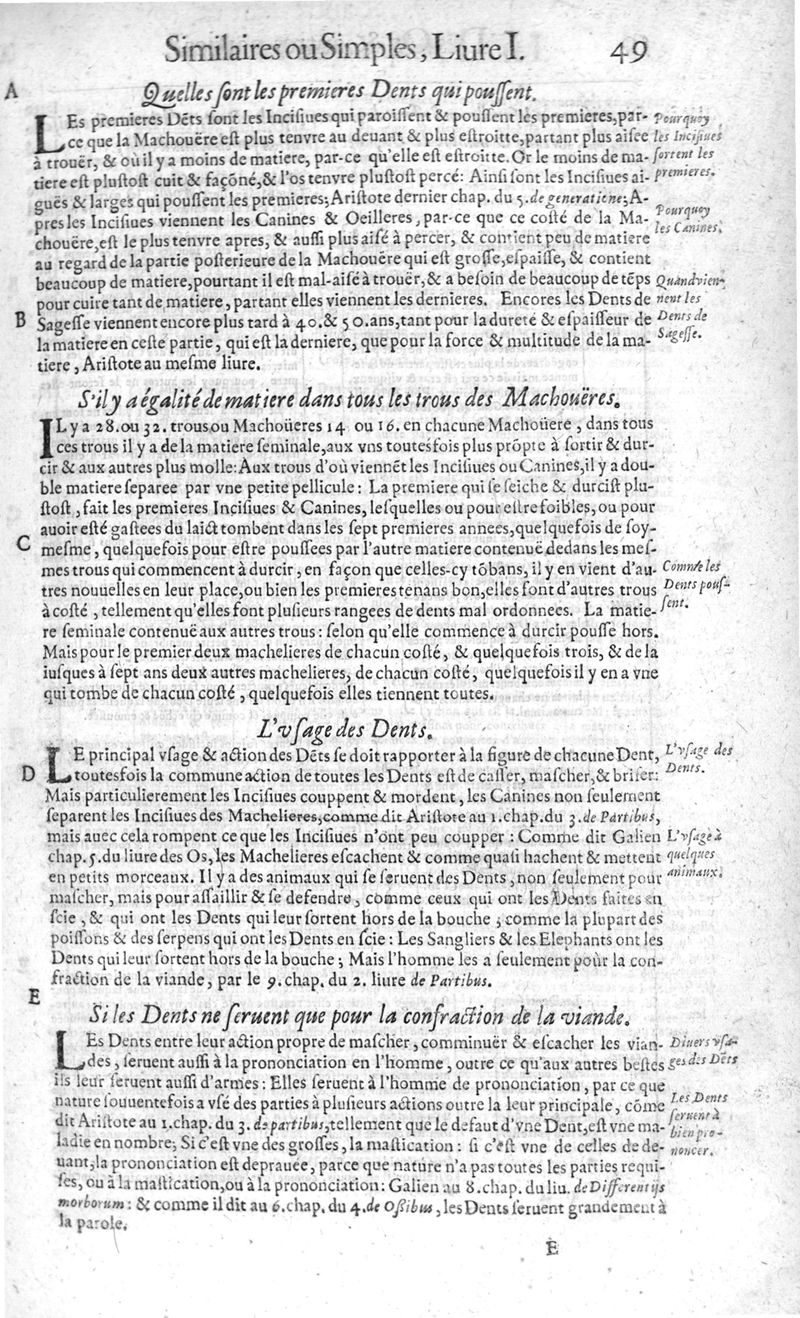 Similaires ou Simples, Liure I. 49
A
Quelles ſont les premieres Dents qui pouſſent.
LEs premieres Dēts ſont les Inciſiues qui paroiſſent & pouſſent les premieres, par-
ce que la Machouëre eſt plus tenvre au deuant & plus eſtroitte, partant plus aiſee
à trouër, & où il y a moins de matiere, par-ce qu'elle eſt eſtroitte. Or le moins de ma-
tiere eſt pluſtoſt cuit & façóné, & l'os tenvre pluſtoſt percé: Ainſi ſont les Inciſiues ai-
guës & larges qui pouſſent les premieres; Ariſtote dernier chap. du 5. de generatione; A-
pres les Inciſiues viennent les Canines & Oeilleres, par-ce que ce coſté de la Ma-
chouëre, eſt le plus tenvre apres, & auſſi plus aiſé à percer, & contient peu de matiere
au regard de la partie poſterieure de la Machouëre qui eſt groſſe, eſpaiſſe, & contient
beaucoup de matiere, pourtant il eſt mal-aiſé à trouër, & a beſoin de beaucoup de tēps
pour cuire tant de matiere, partant elles viennent les dernieres. Encores les Dents de
Sageſſe viennent encore plus tard à 40. & 50. ans, tant pour la dureté & eſpaiſſeur de
la matiere en ceſte partie, qui eſt la derniere, que pour la force & multitude de la ma-
tiere, Ariſtote au meſme liure.
Pourquoy
les Inciſiues
ſortent les
premieres.
Pourquoy
les Canines.
Quand vien-
nent les
Dents de
Sageſſe.
B
S'il y a égalité de matiere dans tous les trous des Machouëres.
IL y a 28. ou 32. trous ou Machoüeres 14 ou 16. en chacune Machoüere, dans tous
ces trous il y a de la matiere ſeminale, aux vns toutesfois plus prōpte à ſortir & dur-
cir & aux autres plus molle: Aux trous d'où viennēt les Inciſiues ou Canines, il y a dou-
ble matiere ſeparee par vne petite pellicule: La premiere qui ſe ſeiche & durciſt plu-
ſtoſt, fait les premieres Inciſiues & Canines, leſquelles ou pour eſtre foibles, ou pour
auoir eſté gaſtees du laict tombent dans les ſept premieres annees, quelquefois de ſoy-
meſme, quelquefois pour eſtre pouſſees par l'autre matiere contenuë dedans les meſ-
mes trous qui commencent à durcir, en façon que celles-cy tōbans, il y en vient d'au-
tres nouuelles en leur place, ou bien les premieres tenans bon, elles font d'autres trous
à coſté, tellement qu'elles font pluſieurs rangees de dents mal ordonnees. La matie-
re ſeminale contenuë aux autres trous: ſelon qu'elle commence à durcir pouſſe hors.
Mais pour le premier deux machelieres de chacun coſté, & quelquefois trois, & de la
iuſques à ſept ans deux autres machelieres, de chacun coſté, quelquefois il y en a vne
qui tombe de chacun coſté, quelquefois elles tiennent toutes.
C
Comme les
Dents pouſ-
ſent.
L'vſage des Dents.
LE principal vſage & action des Dēts ſe doit rapporter à la figure de chacune Dent,
toutesfois la commune action de toutes les Dents eſt de caſſer, maſcher, & briſer:
Mais particulierement les Inciſiues couppent & mordent, les Canines non ſeulement
ſeparent les Inciſiues des Machelieres, comme dit Ariſtote au 1. chap. du 3. de Partibus,
mais auec cela rompent ce que les Inciſiues n'ont peu coupper: Comme dit Galien
chap. 5. du liure des Os, les Machelieres eſcachent & comme quaſi hachent & mettent
en petits morceaux. Il y a des animaux qui ſe ſeruent des Dents, non ſeulement pour
maſcher, mais pour aſſaillir & ſe defendre, comme ceux qui ont les Dents faites en
ſcie, & qui ont les Dents qui leur ſortent hors de la bouche; comme la plupart des
poiſſons & des ſerpens qui ont les Dents en ſcie: Les Sangliers & les Elephants ont les
Dents qui leur ſortent hors de la bouche; Mais l'homme les a ſeulement pour la con-
fraction de la viande, par le 9. chap. du 2. liure de Partibus.
D
L'vſage des
Dents.
L'vſage à
quelques
animaux.
E
Si les Dents ne ſeruent que pour la confraction de la viande.
LEs Dents entre leur action propre de maſcher, comminuër & eſcacher les vian-
des, ſeruent auſſi à la prononciation en l'homme, outre ce qu'aux autres beſtes
ils leur ſeruent auſſi d'armes: Elles ſeruent à l'homme de prononciation, par ce que
nature ſouuentefois a vſé des parties à pluſieurs actions outre la leur principale, cōme
dit Ariſtote au 1. chap. du 3. de partibus; tellement que le defaut d'vne Dent, eſt vne ma-
ladie en nombre; Si c'eſt vne des groſſes, la maſtication: ſi c'eſt vne de celles de de-
uant, la prononciation eſt deprauée, parce que nature n'a pas toutes les parties requi-
ſes, ou à la maſtication, ou à la prononciation: Galien au 8. chap. du liu. de Differentijs
morborum: & comme il dit au 6. chap. du 4. de Oſſibus, les Dents ſeruent grandement à
la parole.
Diuers vſa-
ges des Dēts
Les Dents
ſeruent à
bien pro-
noncer.
E